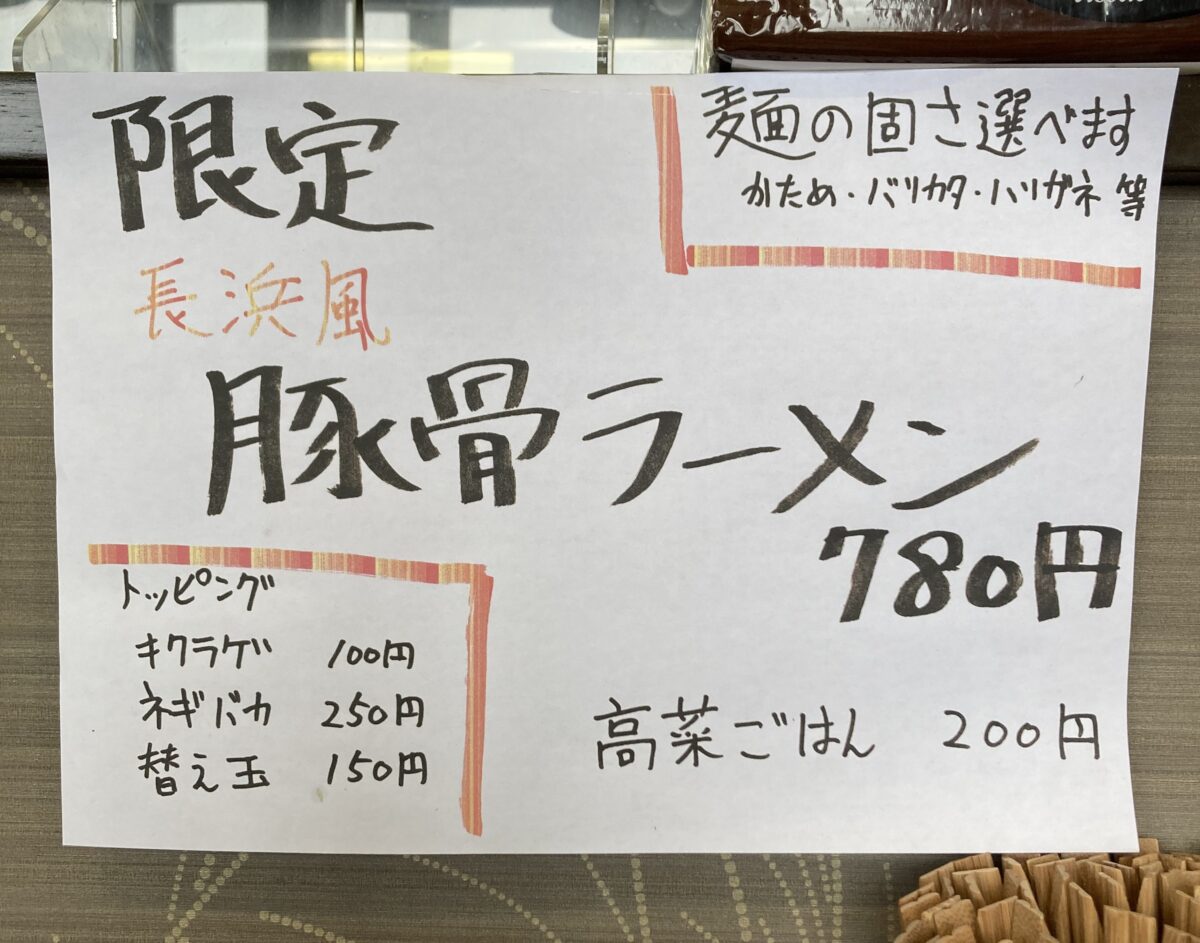 限定
麺の固さ選べます
かため・バリカタ・ハリガネ 等
長浜風
豚骨ラーメン
780円
トッピング
キクラゲ 100円
ネギバカ 250円
替え玉 150円
高菜ごはん 200円